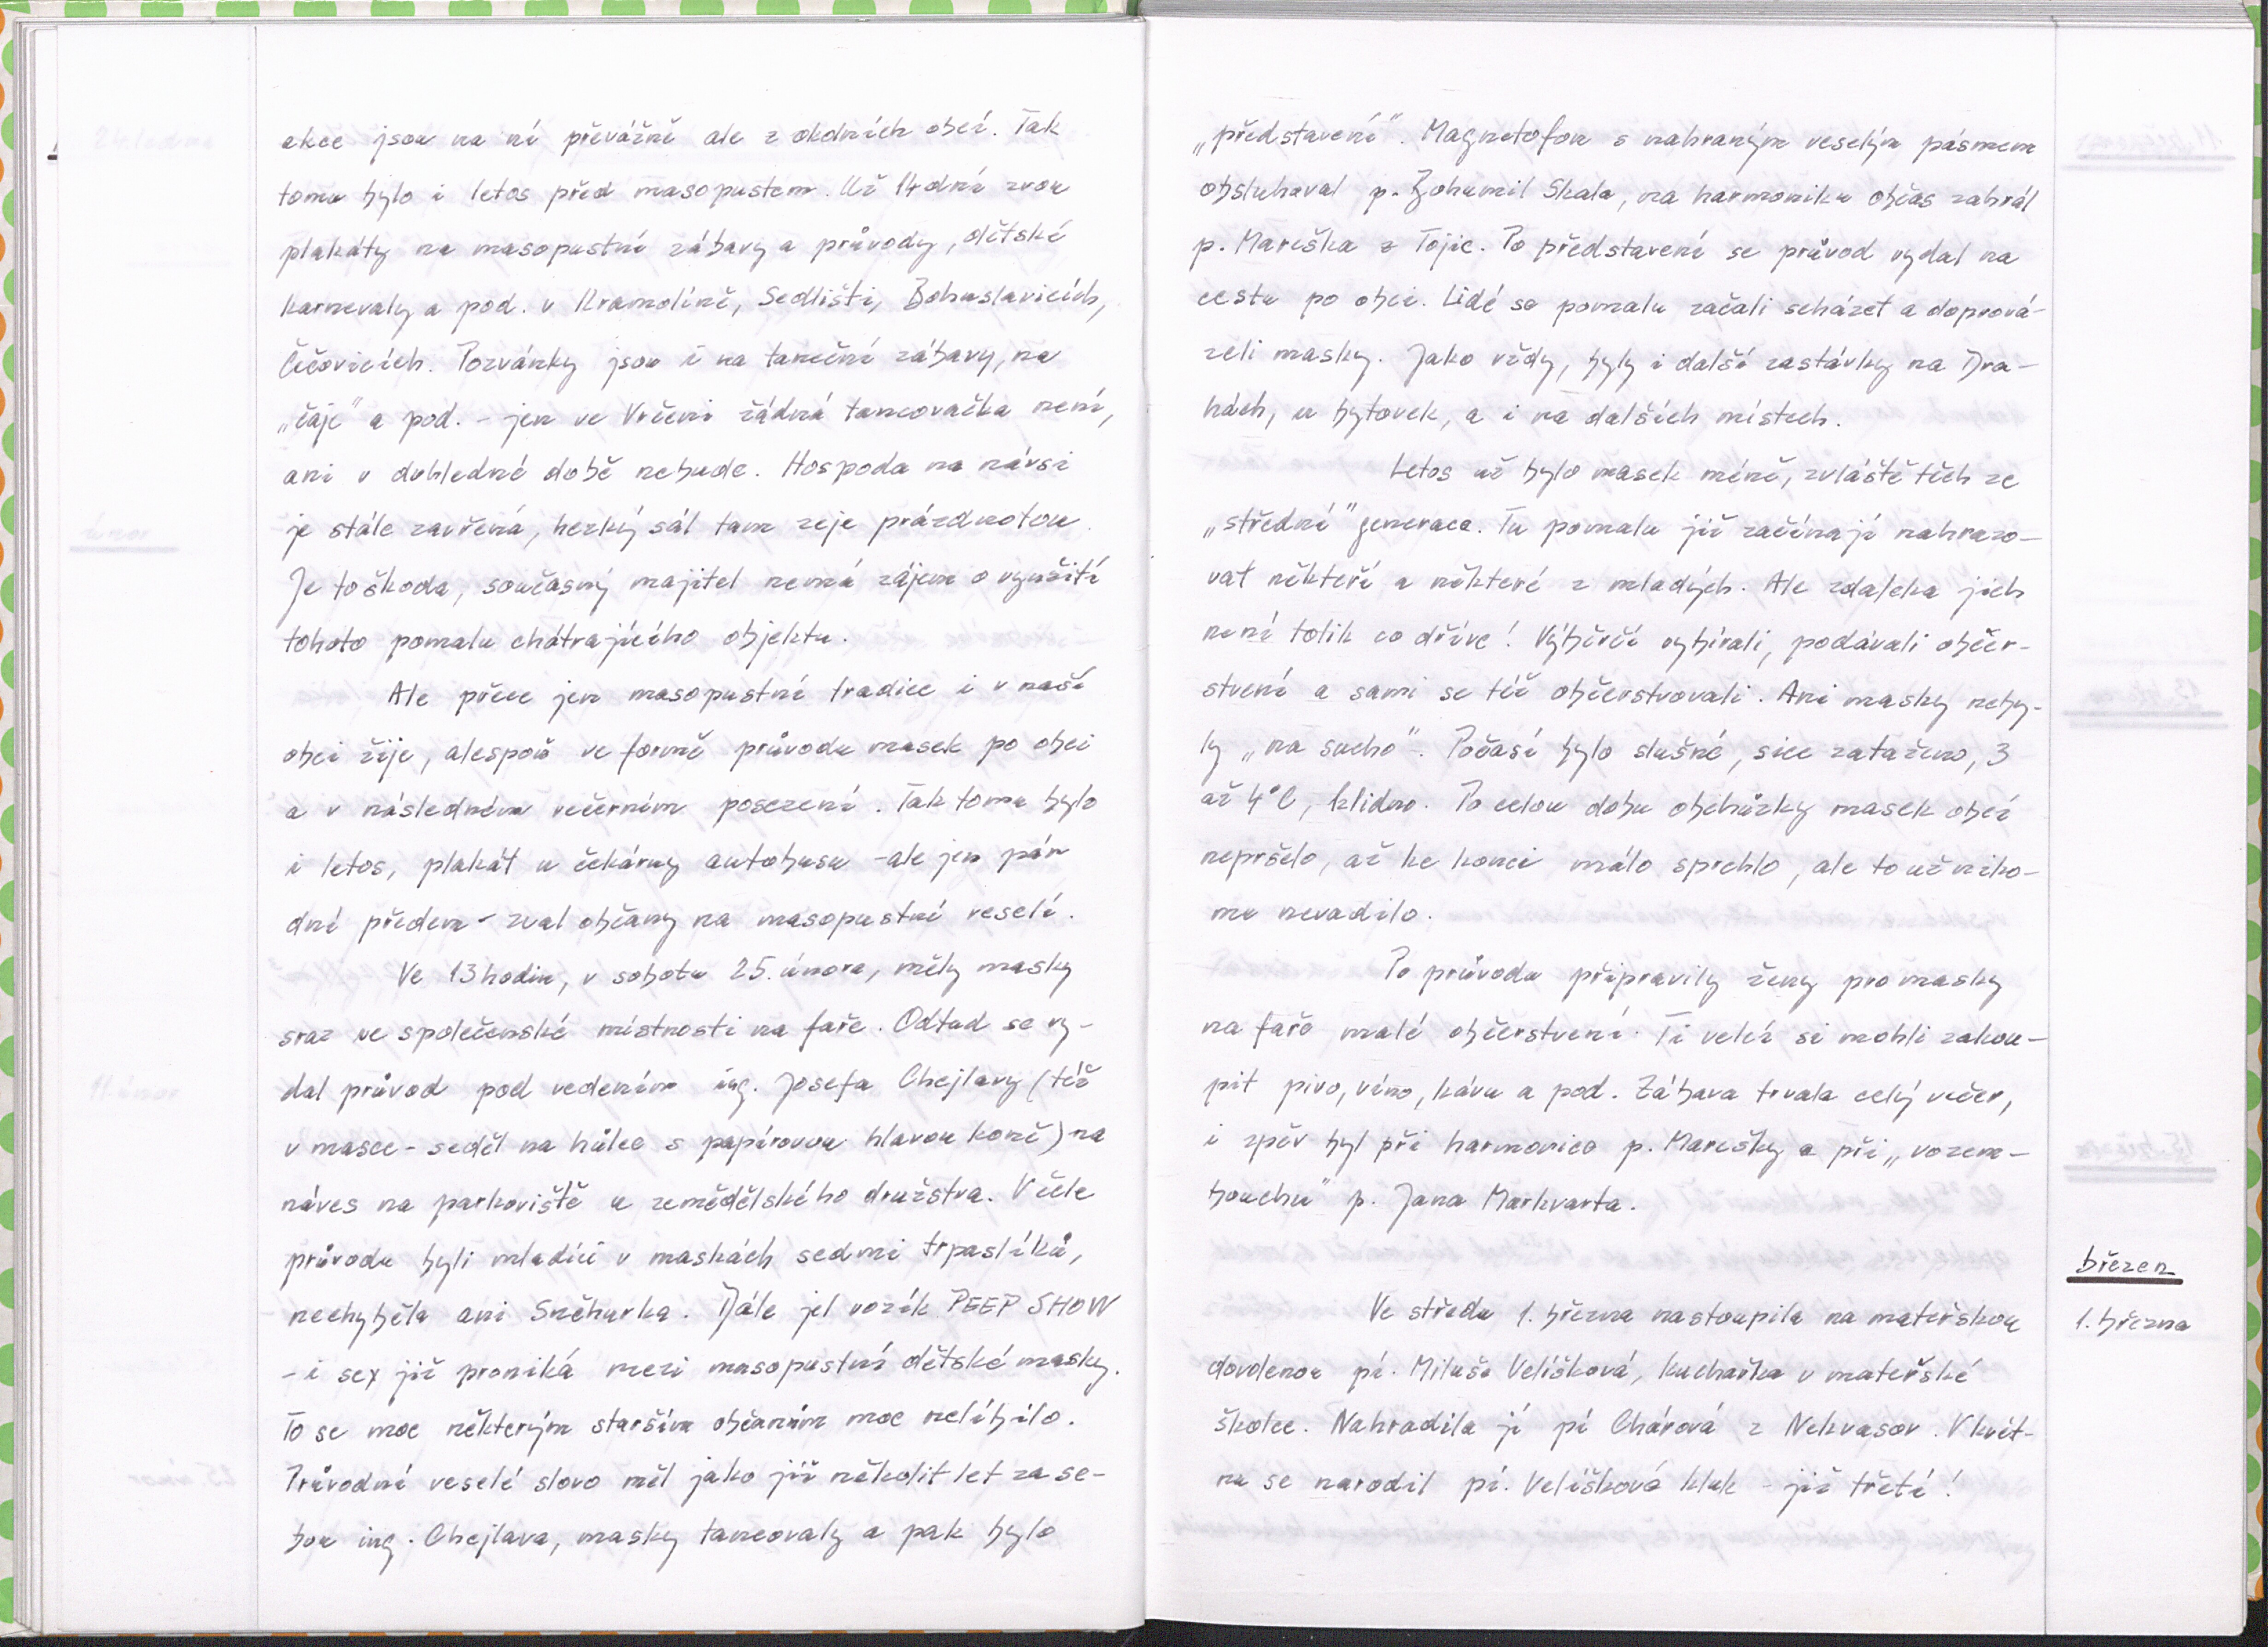 akce jsou na ní převážně ale z okolních obcí. Tak
tomu bylo i letos před masopustem. Už 14 dní zvou
plakáty na masopustní zábavy a průvody, dětské
karnevaly a pod. v Kramolíně, Sedlišti, Bohuslavicích,
Čečovicích. Pozvánky jsou i na taneční zábavy, na
„čaje" a pod. - jen ve Vrčeni žádná tancovačka není,
ani v dohledné době nebude. Hospoda na návsi
je stále zavřená, hezký sál tam zeje prázdnotou.
Je to škoda, současný majitel nemá zájem o využití
tohoto pomalu chátrajícího objektu.
Ale přece jen masopustní tradice i v naší
obci žije, alespoň ve formě průvodu masek po obci
a v následném večerním posezení. Tak tomu bylo
i letos, plakát u čekárny autobusu - ale jen pár
dní předem - zval občany na masopustní veselí.
Ve 13 hodin, v sobotu 25. února, měly masky
sraz ve společenské místnosti na faře. Odtud se vy-
dal průvod pod vedením ing. Josefa Chejlavy (též
v masce - seděl na hůlce s papírovou hlavou koně) na
náves na parkoviště u zemědělského družstva. V čele
průvodu byli mladíci v maskách sedmi trpaslíků,
nechyběla ani Sněhurka. Dále jel vozík PEEP SHOW
- i sex již proniká mezi masopustní dětské masky.
To se moc některým starším občanům moc nelíbilo.
Průvodní veselé slovo měl jako již několit let za se-
bou ing. Chejlava, masky tancovaly a pak bylo
„představení". Magnetofon s nahraným veselým pásmem
obsluhoval p. Bohumil Skala, na harmoniku občas zahrál
p. Mareška z Tojic. Po představení se průvod vydal na
cestu po obci. Lidé se pomalu začali scházet a doprová-
zeli masky. Jako vždy, byly i další zastávky na Dra-
hách, u bytovek, a i na dalších místech.
Letos už bylo masek méně, zvláště těch ze
„střední" generace. Tu pomalu již začínají nahrazo-
vat někteří a některé z mladých. Ale zdaleka jich
není tolik co dříve! Výběrčí vybírali, podávali občer-
stvení a sami se též občerstvovali. Ani masky neby-
ly „na sucho". Počasí bylo slušné, sice zataženo, 3
až 4°C, klidno. Po celou dobu obchůzky masek obcí
nepršelo, až ke konci málo sprchlo, ale to už niko-
mu nevadilo.
Po průvodu připravily ženy pro masky
na faře malé občerstvení. Ti velcí si mohli zakou-
pit pivo, víno, kávu a pod. Zábava trvala celý večer,
i zpěv byl při harmonice p. Marešky a při „vozem-
bouchu" p. Jana Markvarta.
březen
Ve středu 1. března nastoupila na mateřskou
1. března
dovolenou pí. Miluše Velíšková, kuchařka v mateřské
školce. Nahradila jí pí Chárová z Nekvasov. V květ-
nu se narodil pí. Velíškové kluk - již třetí!